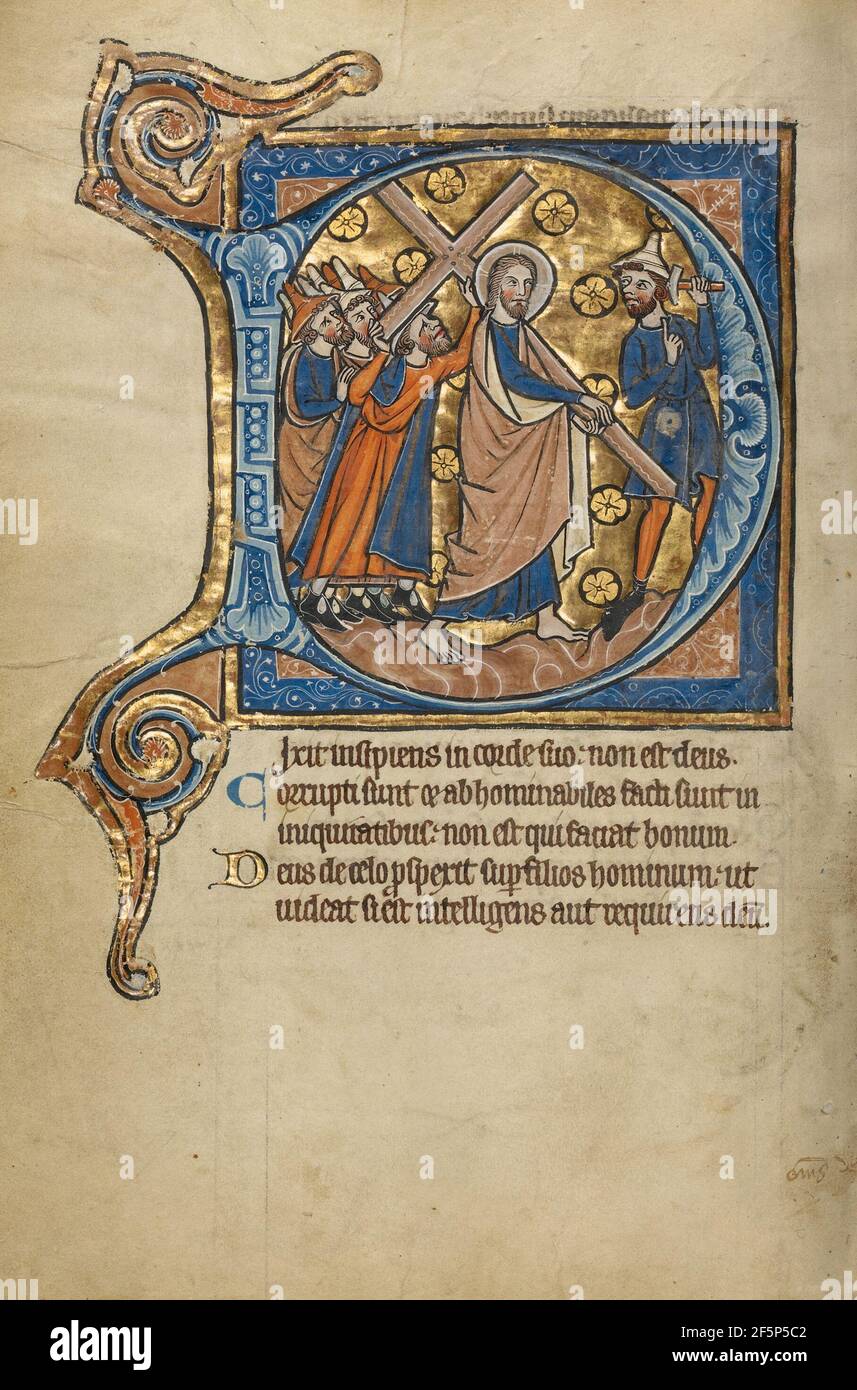 Dixit insipiens in corde suo: non est deus.
Corrupti sunt & abhominabiles facti sunt in
iniquitatibus: non est qui faciat bonum.
Deus de celo ꝓspexit suꝑ filios hominum: ut
uideat si est intelligens aut requirens dm̄.
alamy
Image ID: 2F5P5C2
www.alamy.com